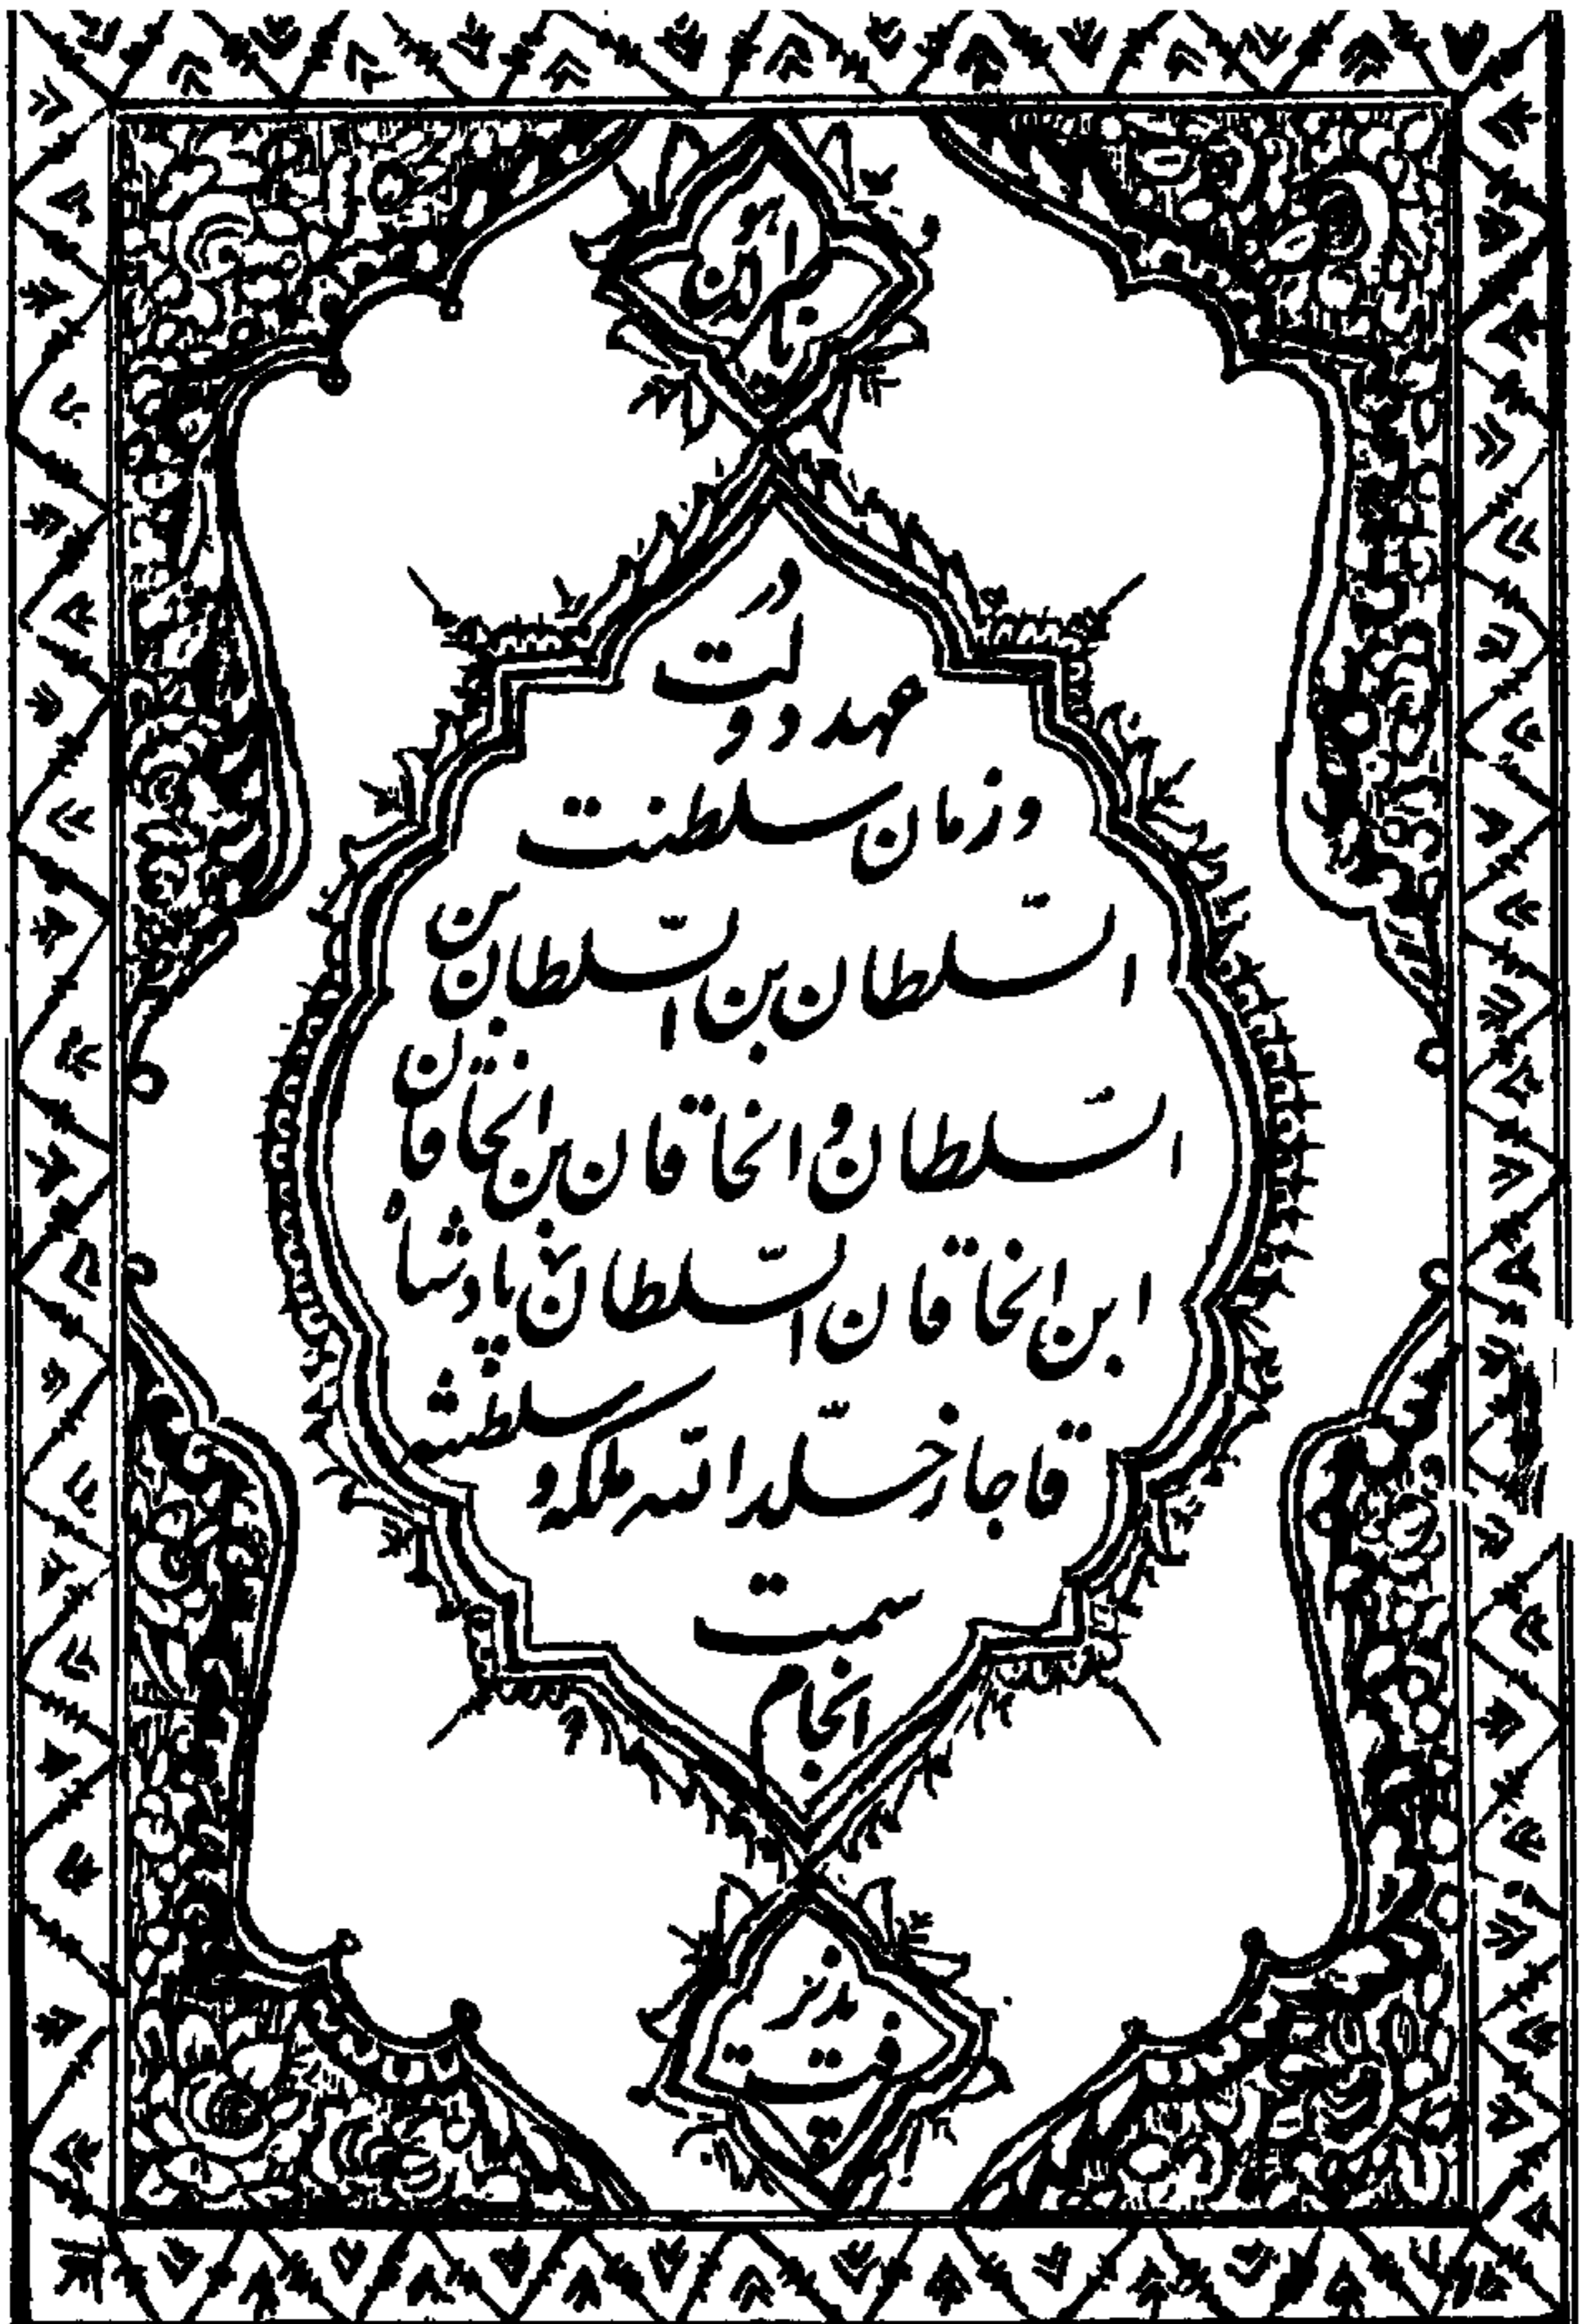 ناصرالدین
در
عهد دولت
و زمان سلطنت
السلطان بن السلطان بن
السلطان و الخاقان بن الخاقان
ابن الخاقان السلطان پادشاه
قاجار خلد الله ملکه و سلطنته
سمت
انجام
پذیرفت